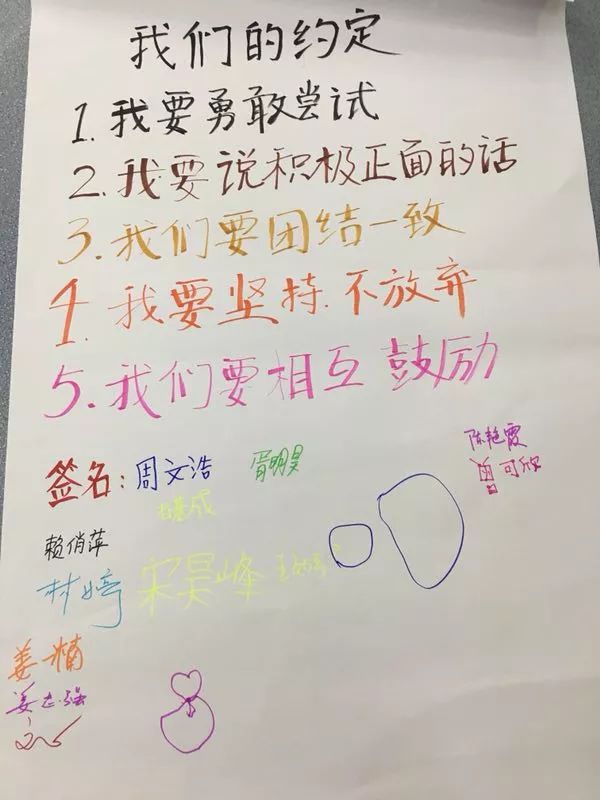 我们的约定
1. 我要勇敢尝试
2. 我要说积极正面的话
3. 我们要团结一致
4. 我要坚持.不放弃
5. 我们要相互鼓励
陈艳霞
签名: 周文浩 胥明昊
曾可欣
赖俏萍
林婷 宋昊峰
姜楠
姜志强